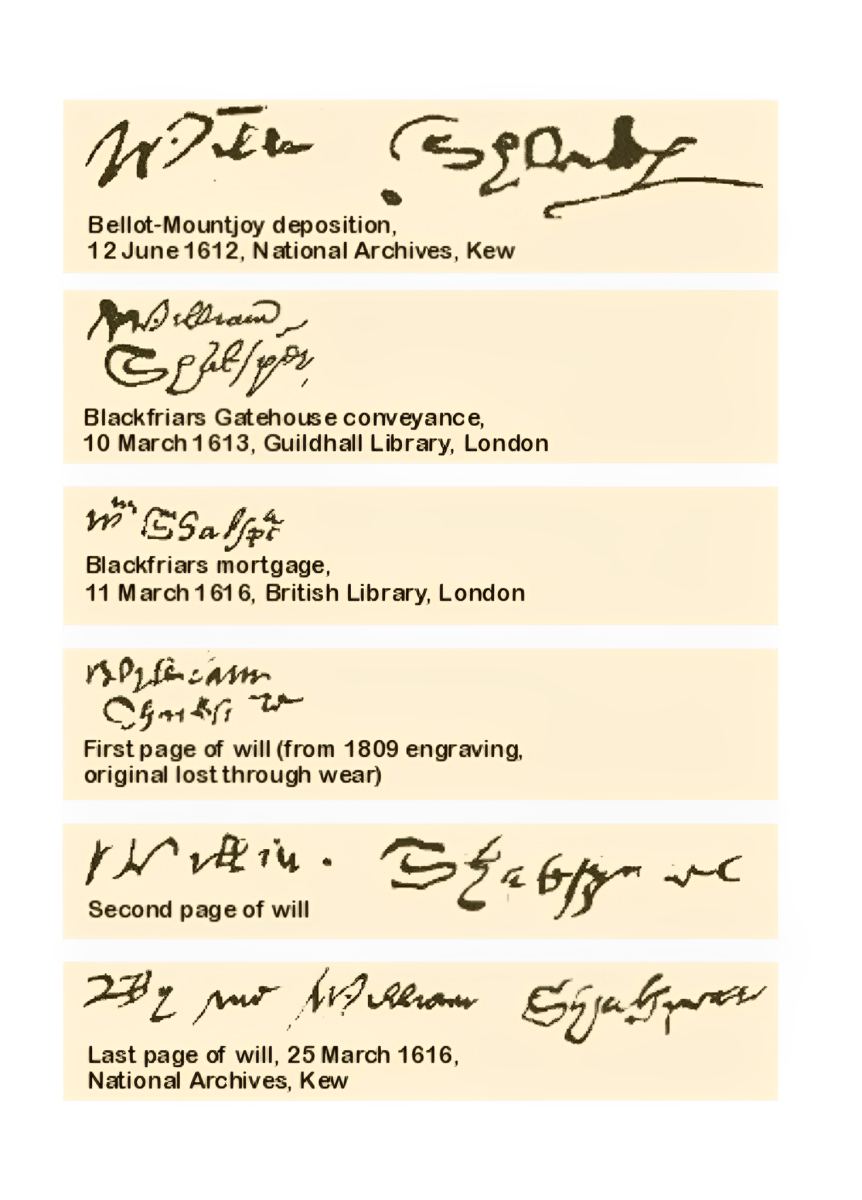 Bellot-Mountjoy deposition,
12 June 1612, National Archives, Kew
William
Blackfriars Gatehouse conveyance,
10 March 1613, Guildhall Library, London
Wm
Blackfriars mortgage,
11 March 1616, British Library, London
First page of will (from 1809 engraving,
original lost through wear)
Second page of will
By me William
Last page of will, 25 March 1616,
National Archives, Kew